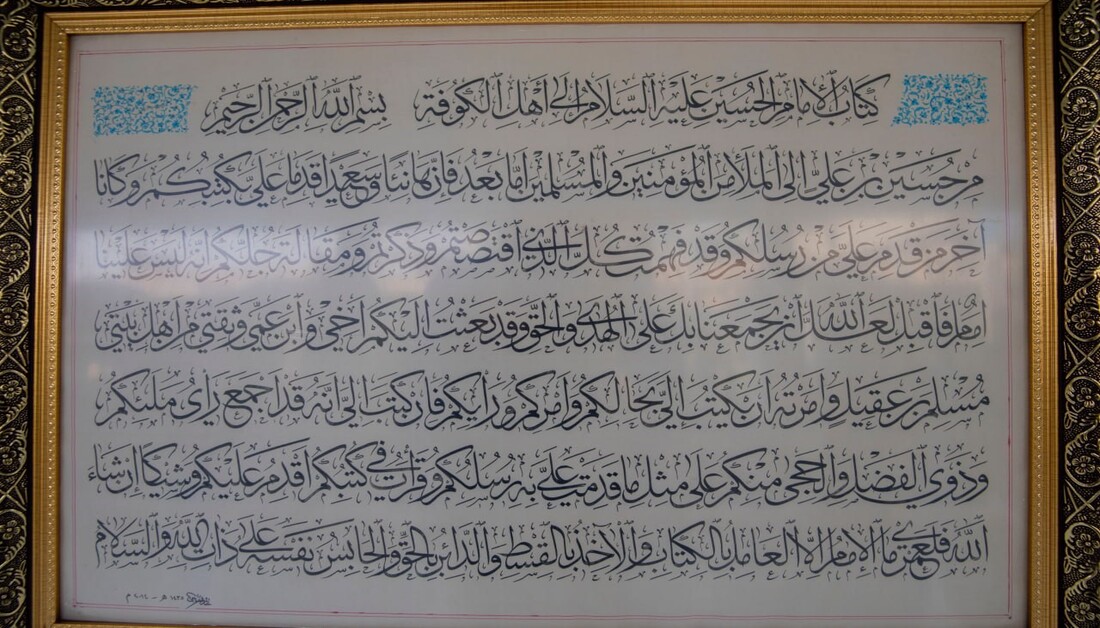 كتاب الإمام الحسين عليه السلام إلى أهل الكوفة بسم الله الرحمن الرحيم
من حسين بن علي إلى الملأ من المؤمنين والمسلمين أما بعد فإن هانئا وسعيدا قدما علي بكتبكم وكانا
آخر من قدم علي من رسلكم وقد فهمت كل الذي اقتصصتم وذكرتم ومقالة جلكم إنه ليس علينا
إمام فأقبل لعل الله أن يجمعنا بك على الهدى والحق وقد بعثت إليكم أخي وابن عمي وثقتي من أهل بيتي
مسلم بن عقيل وأمرته أن يكتب إلي بحالكم وأمركم ورأيكم فإن كتب إلي أنه قد أجمع رأي ملئكم
وذوي الفضل والحجى منكم على مثل ما قدمت علي به رسلكم وقرأت في كتبكم أقدم عليكم وشيكا إن شاء
الله فلعمري ما الإمام إلا العامل بالكتاب والآخذ بالقسط والدائن بالحق والحابس نفسه على ذات الله والسلام
١٤٣٥ هـ - ٢٠١٤ م